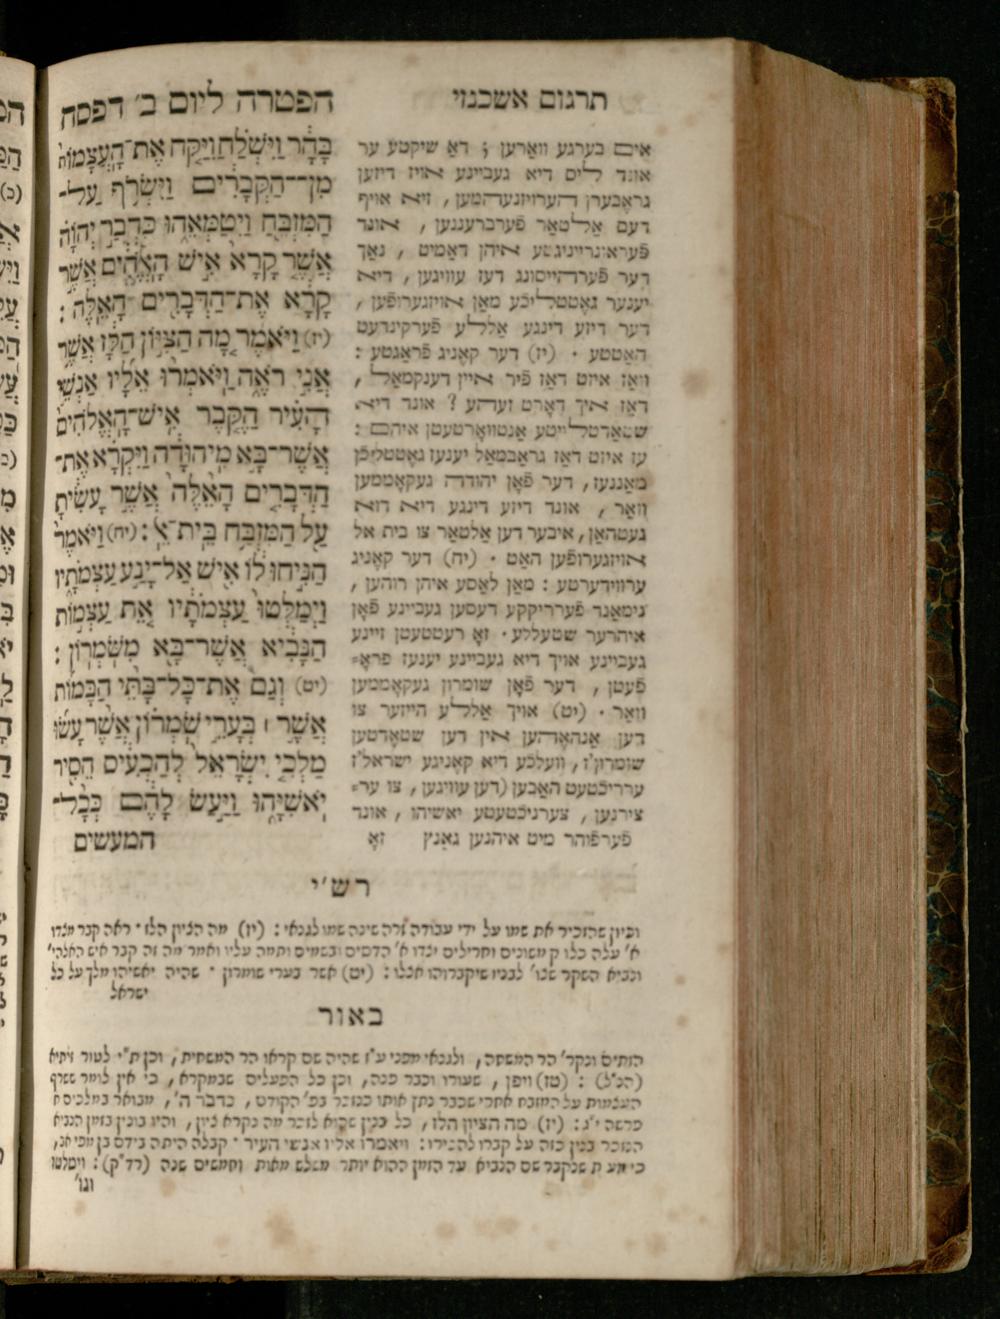 הפטרה ליום ב׳ דפסח
בָּהָר וַיִּשְׁלַח וַיִּקַּח אֶת־הָעֲצָמוֹת
מִן־הַקְּבָרִים וַיִּשְׂרֹף עַל־
הַמִּזְבֵּחַ וַיְטַמְּאֵהוּ כִּדְבַר יְהוָֹה
אֲשֶׁר קָרָא אִישׁ הָאֱלֹהִים אֲשֶׁר
קָרָא אֶת־הַדְּבָרִים הָאֵלֶּה :
(יז) וַיֹּאמֶר מָה הַצִּיּוּן הַלָּז אֲשֶׁר
אֲנִי רֹאֶה וַיֹּאמְרוּ אֵלָיו אַנְשֵׁי
הָעִיר הַקֶּבֶר אִישׁ־הָאֱלֹהִים
אֲשֶׁר־בָּא מִיהוּדָה וַיִּקְרָא אֶת־
הַדְּבָרִים הָאֵלֶּה אֲשֶׁר עָשִׂיתָ
עַל הַמִּזְבַּח בֵּית־אֵל : (יח) וַיֹּאמֶר
הַנִּיחוּ לוֹ אִישׁ אַל־יָנַע עַצְמֹתָיו
וַיְמַלְּטוּ עַצְמֹתָיו אֵת עַצְמוֹת
הַנָּבִיא אֲשֶׁר־בָּא מִשֹּׁמְרוֹן :
(יט) וְגַם אֶת־כָּל־בָּתֵּי הַבָּמוֹת
אֲשֶׁר ׀ בְּעָרֵי שֹׁמְרוֹן אֲשֶׁר עָשׂוּ
מַלְכֵי יִשְׂרָאֵל לְהַכְעִיס הֵסִיר
יֹאשִׁיָּהוּ וַיַּעַשׂ לָהֶם כְּכָל־
המעשים
תרגום אשכנזי
אים בערגע וואַרען ; דאַ שיקטע ער
אונד ליס דיא געביינע אויז דיזען
גראַבערן העראויזנעהמען , זיא אויף
דעם אַלטאַר פֿערברעננען , אונד
פֿעראונרייניגטע איהן דאַמיט , נאַך
דער פֿערהייסונג דעז עוויגען , דיא
יענער גאָטטליכע מאַן אויזגערופֿען ,
דער דיזע דינגע אַללע פֿערקינדעט
האַטטע . (יז) דער קאָניג פֿראַגטע :
וואַז איזט דאַז פֿיר איין דענקמאַל ,
דאַז איך דאָרט זעהע ? אונד דיא
שטאַדטלייטע אַנטוואָרטעטן איהם :
עז איזט דאַז גראַבמאַל יענעז גאָטטליכן
מאַננעז , דער פֿאָן יהודה געקאָממען
וואַר , אונד דיזע דינגע דיא דוא
געטהאַן , איבער דען אַלטאַר צו בית אל
אויזגערופֿען האַט . (יח) דער קאָניג
ערווידערטע : מאַן לאַסע איהן רוהען ,
נימאַנד פֿעררוקקע דעסען געביינע פֿאָן
איהרער שטעללע . זאָ רעטטעטן זיינע
געביינע אויך דיא געביינע יענעז פּראָ=
פֿעטן , דער פֿאָן שומרון געקאָממען
וואַר . (יט) אויך אַללע הייזער צו
דען אַנהאָהען אין דען שטאָדטען
שומרון'ז , וועלכע דיא קאָניגע ישראל'ז
ערריכטעט האַבען (דען עוויגען , צו ער=
צירנען , צערניכטעטע יאשיהו , אונד
פֿערפֿוהר מיט איהנען גאַנץ זאָ
רש״י
וכיון שהזכיר את שמו על ידי עבודה זרה שינה שמו לגנאי : (יז) מה הציון הלז . ראה קבר מצדו
א׳ עלה כלו קמשונים וחרילים ומצדו א׳ הדסים ובשמים ותמה עליו ואמר מה זה קבר איש האלהי׳
ונביא השקר שצו׳ לבניו שיקברוהו אצלו : (יט) אשר בערי שומרון . שהיה יאשיהו מלך על כל
ישראל
באור
הזתים ונקר׳ הר המשחה , ולגנאי מפני ע״ז שהיה שם קראו הר המשחית , וכן ת״י לטור זיתיא
(הנ״ל) : (טז) ויפן , שעורו וכבר פנה , וכן כל הפעלים שבמקרא , כי אין לומר ששרף
העצמות על המזבח אחרי שכבר נתן אותו כנזכר בפ׳ הקודם , כדבר ה׳ , מבואר במלכים א
פרשה י״ג : (יז) מה הציון הלז , כל בנין שהוא לזכר מה נקרא ציון , והיו בונין בזמן הנביא
הנזכר בנין כזה על קברו להכירו : ויאמרו אליו אנשי העיר . קבלה היתה בידם בן מפי אב ,
כי מעת שנקבר שם הנביא עד הזמן ההוא יותר משלש מאות וחמשים שנה (רד״ק) : וימלטו
וגו׳